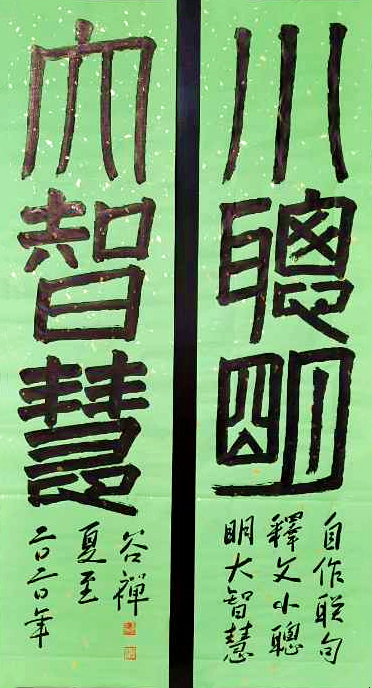 小聰明
自作联句
釋文小聰
明大智慧
大智慧
谷禪
夏至
二〇二〇年